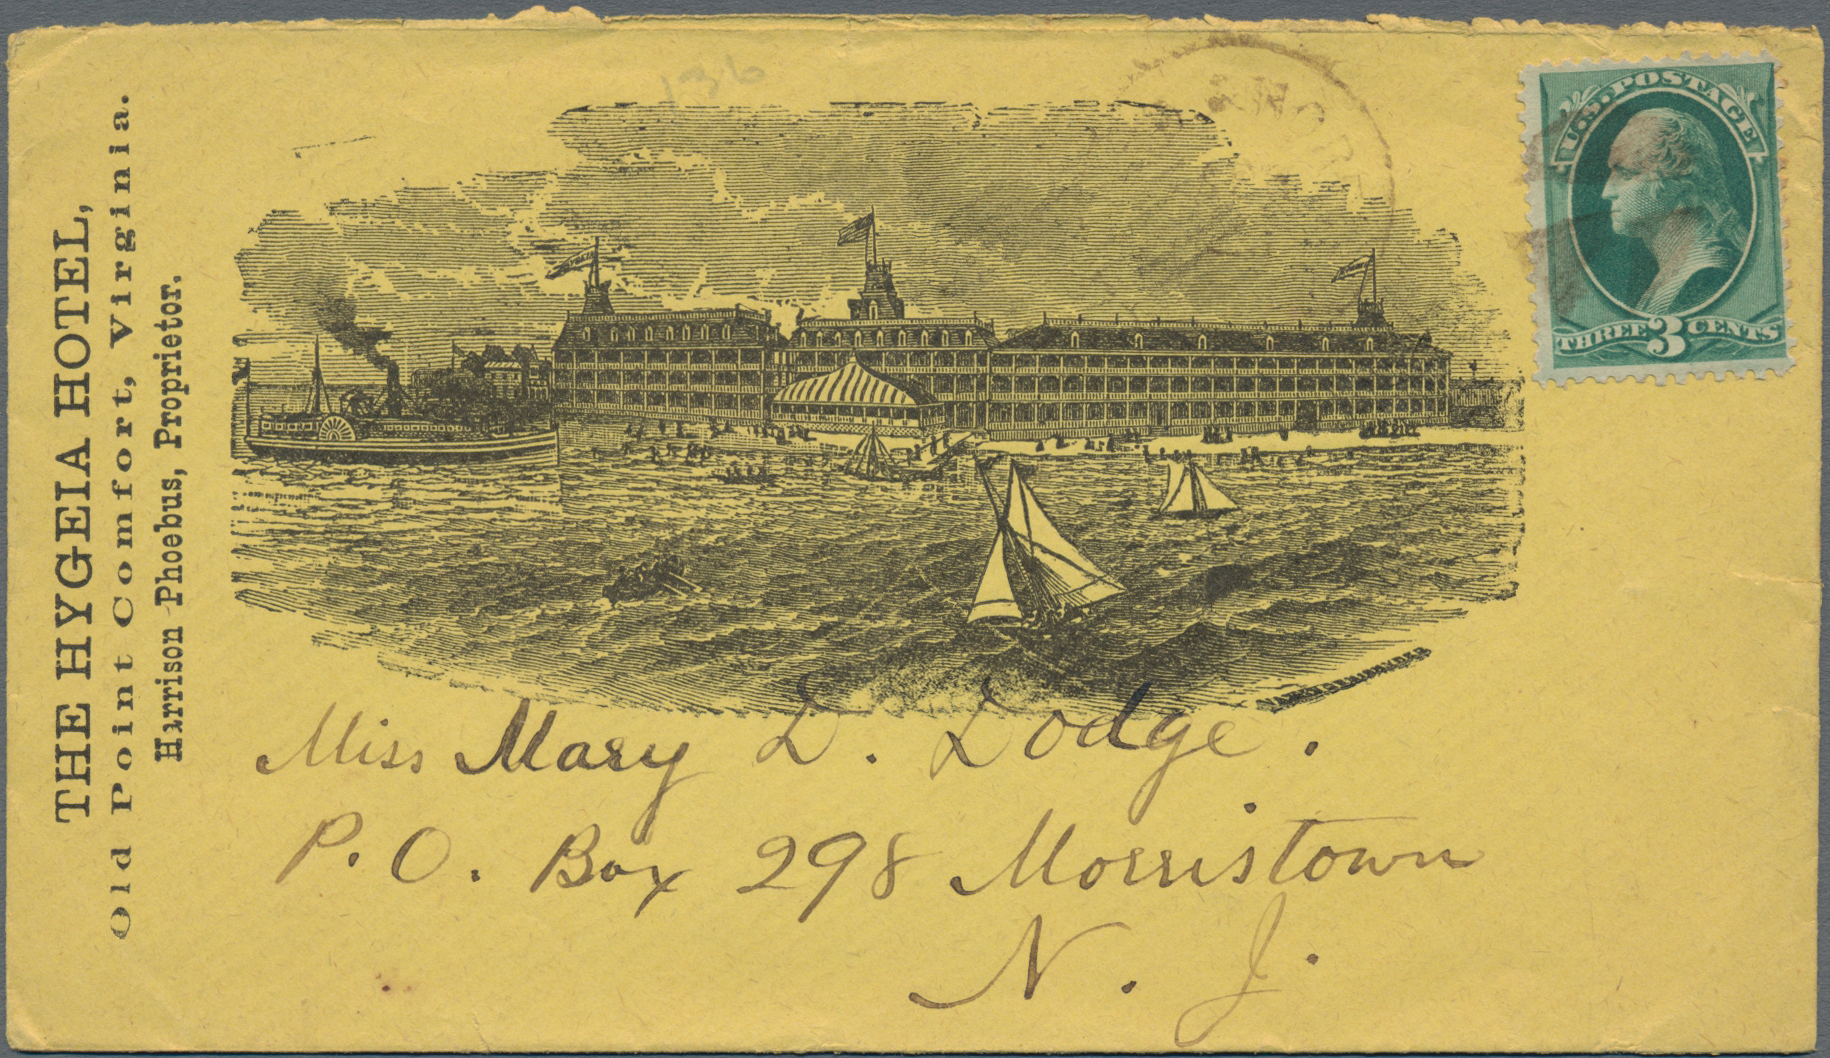 THE HYGEIA HOTEL,
Old Point Comfort, Virginia.
Harrison Phoebus, Proprietor.
136
U.S. POSTAGE
THREE 3 CENTS
Miss Mary D. Dodge.
P. O. Box 298 Morristown
N. J.